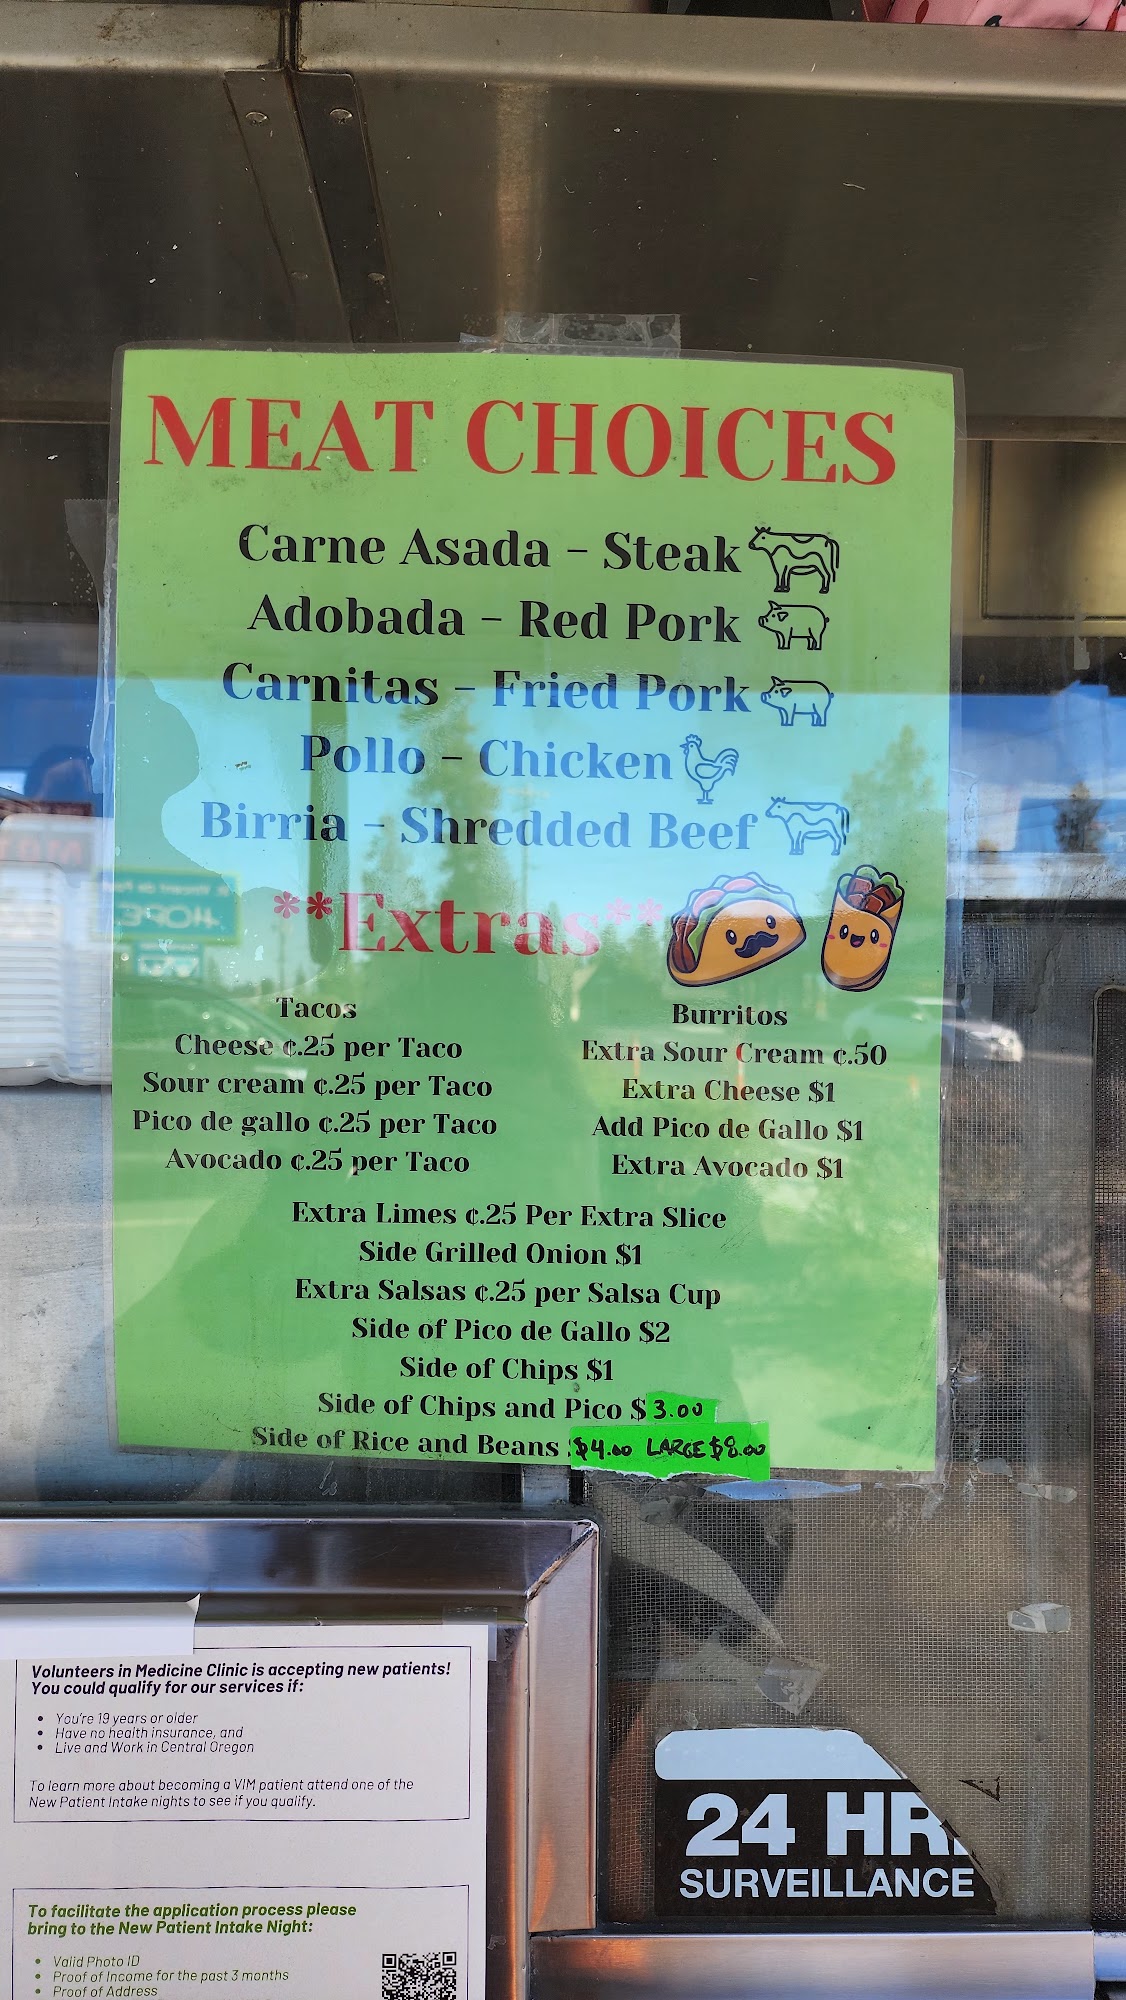 MEAT CHOICES
Carne Asada - Steak
Adobada - Red Pork
Carnitas - Fried Pork
Pollo - Chicken
Birria - Shredded Beef
**Extras**
Tacos
Cheese ¢.25 per Taco
Sour cream ¢.25 per Taco
Pico de gallo ¢.25 per Taco
Avocado ¢.25 per Taco
Burritos
Extra Sour Cream ¢.50
Extra Cheese $1
Add Pico de Gallo $1
Extra Avocado $1
Extra Limes ¢.25 Per Extra Slice
Side Grilled Onion $1
Extra Salsas ¢.25 per Salsa Cup
Side of Pico de Gallo $2
Side of Chips $1
Side of Chips and Pico $3.00
Side of Rice and Beans $4.00 LARGE $8.00
Volunteers in Medicine Clinic is accepting new patients!
You could qualify for our services if:
• You're 19 years or older
• Have no health insurance, and
• Live and Work in Central Oregon
To learn more about becoming a VIM patient attend one of the
New Patient Intake nights to see if you qualify.
To facilitate the application process please
bring to the New Patient Intake Night:
• Valid Photo ID
• Proof of Income for the past 3 months
• Proof of Address
24 HR
SURVEILLANCE